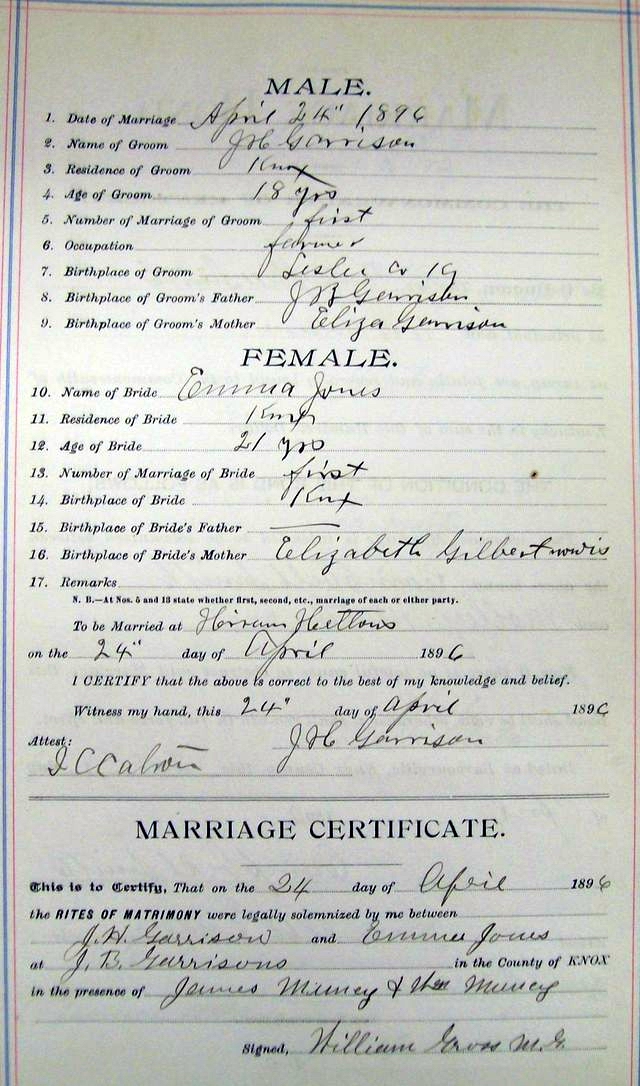 MALE.
1. Date of Marriage April 24" 1896
2. Name of Groom J H Garrison
3. Residence of Groom Knox
4. Age of Groom 18 yrs
5. Number of Marriage of Groom first
6. Occupation farmer
7. Birthplace of Groom Leslie Co Ky
8. Birthplace of Groom's Father J B Garrison
9. Birthplace of Groom's Mother Eliza Garrison
FEMALE.
10. Name of Bride Emma Jones
11. Residence of Bride Knox
12. Age of Bride 21 yrs
13. Number of Marriage of Bride first
14. Birthplace of Bride Knox
15. Birthplace of Bride's Father —
16. Birthplace of Bride's Mother Elizabeth Gilbert
17. Remarks
N. B.—At Nos. 5 and 13 state whether first, second, etc., marriage of each or either party.
To be Married at Hiram
on the 24" day of April 1896
I CERTIFY that the above is correct to the best of my knowledge and belief.
Witness my hand, this 24" day of April 1896
Attest: J H Garrison
MARRIAGE CERTIFICATE.
This is to Certify, That on the 24 day of April 1896
the RITES OF MATRIMONY were legally solemnized by me between
J. H. Garrison and Emma Jones
at J. B. Garrisons in the County of KNOX
in the presence of James Muncy & Wm Muncy
Signed, William Gross M.G.